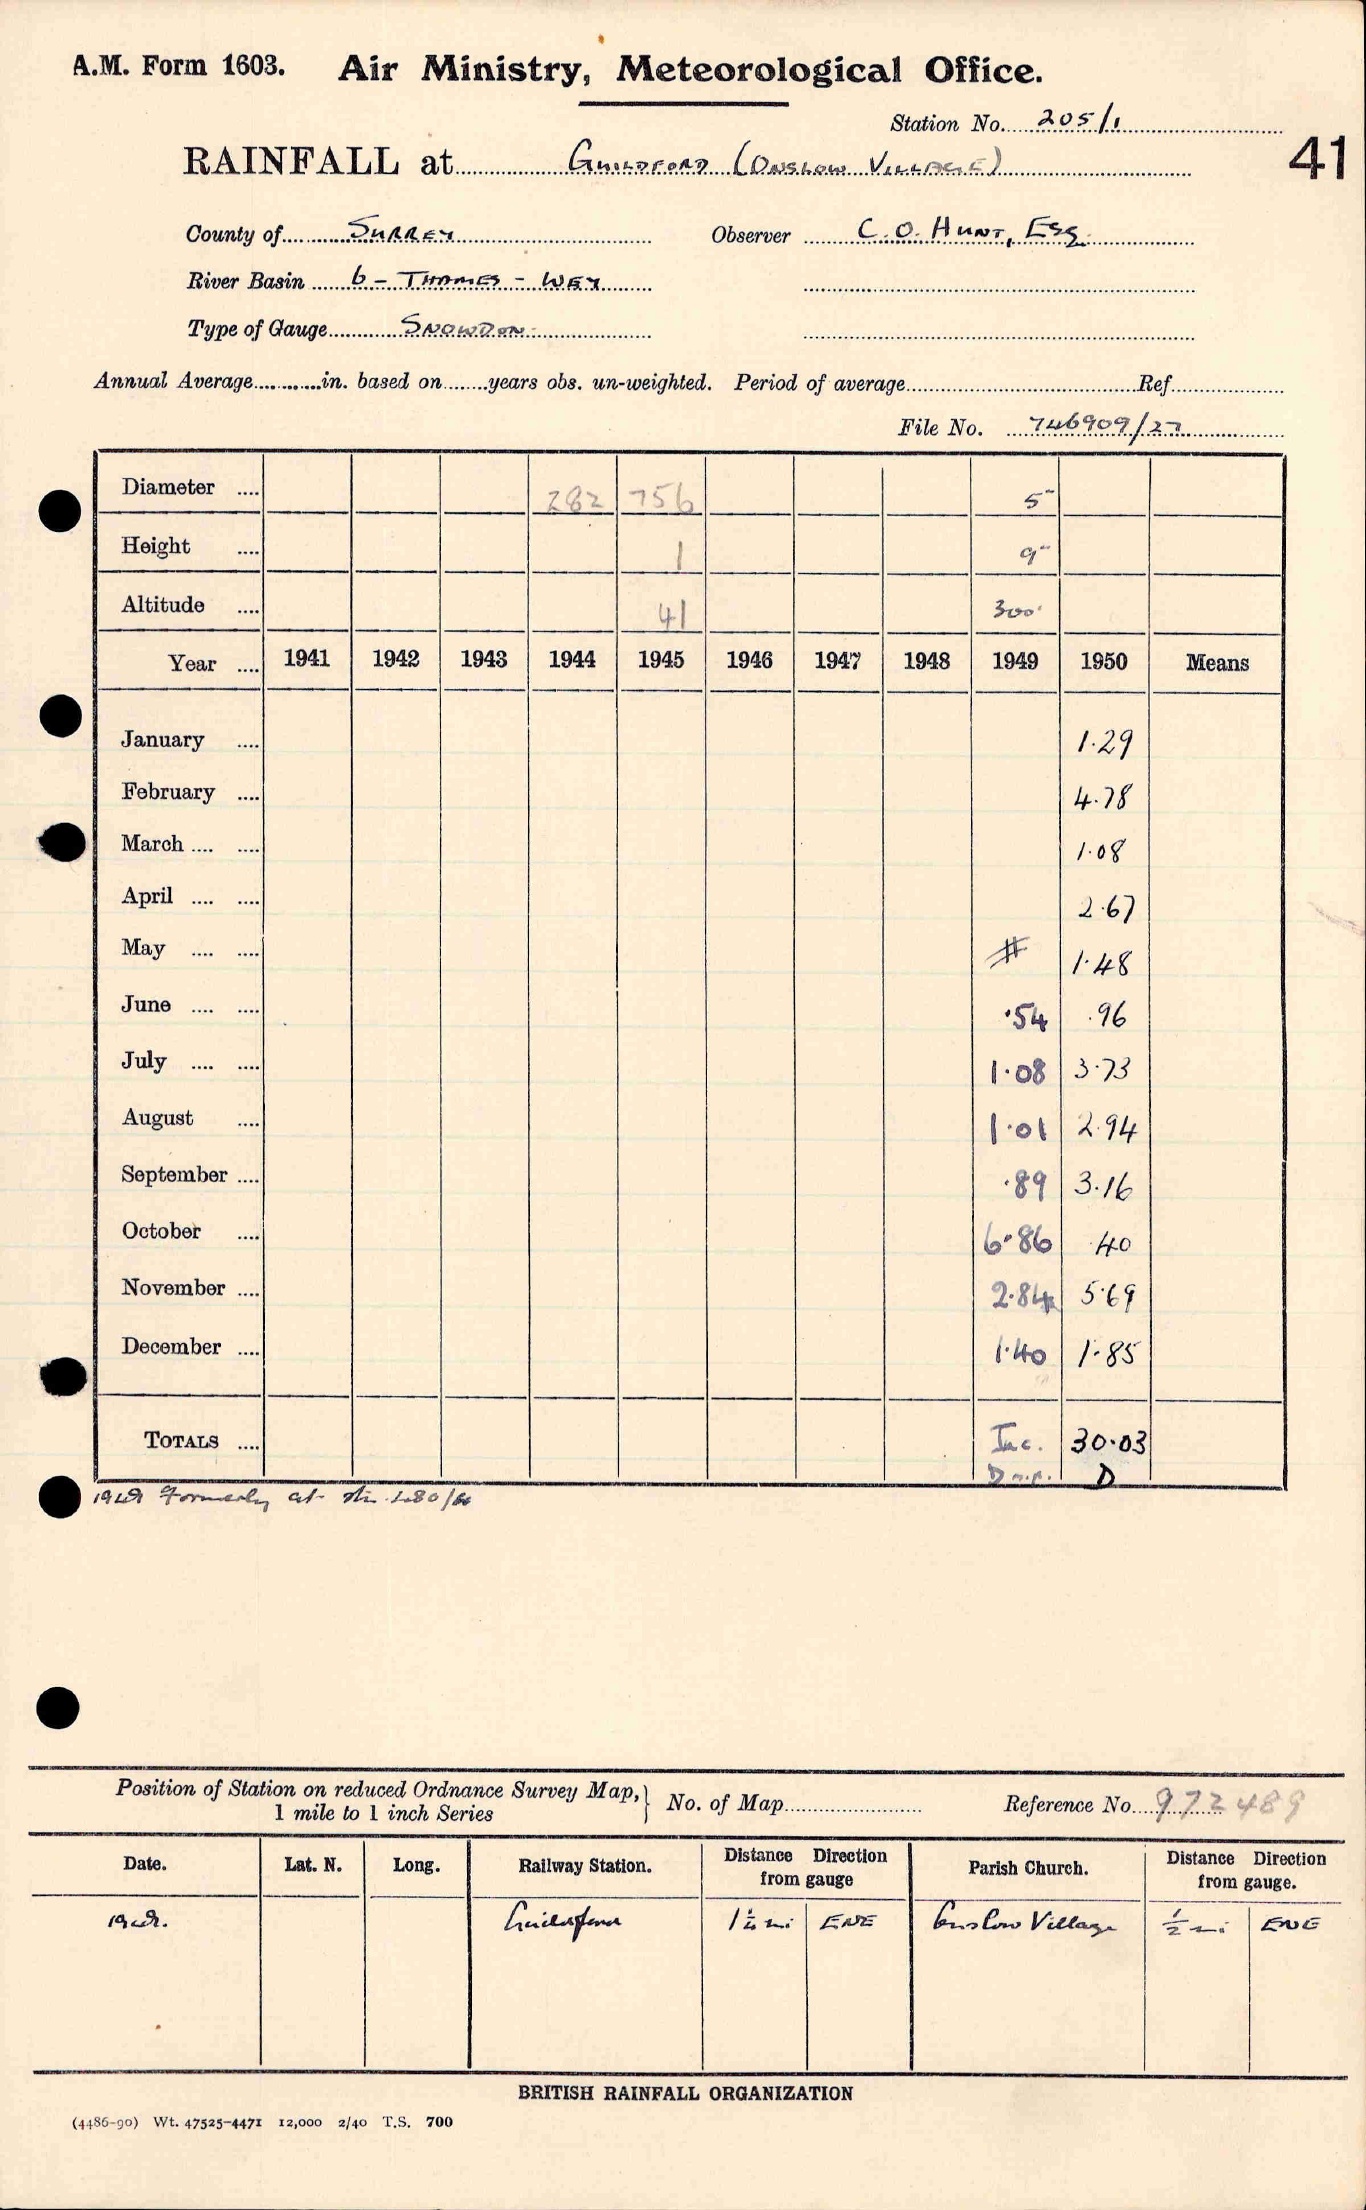 A.M. Form 1603. Air Ministry, Meteorological Office.
Station No. 205/1
41
RAINFALL at GUILDFORD (ONSLOW VILLAGE)
County of SURREY Observer C. O. HUNT, ESQ.
River Basin 6 - THAMES - WEY
Type of Gauge SNOWDON
Annual Average in. based on years obs. un-weighted. Period of average Ref.
File No. 746909/27
Diameter 282 756 5"
Height 1 9"
Altitude 41 300'
Year 1941 1942 1943 1944 1945 1946 1947 1948 1949 1950 Means
January 1.29
February 4.78
March 1.08
April 2.67
May # 1.48
June .54 .96
July 1.08 3.73
August 1.01 2.94
September .89 3.16
October 6.86 .40
November 2.84 5.69
December 1.40 1.85
TOTALS Inc. 30.03
D
1949 Formerly at stn.
Position of Station on reduced Ordnance Survey Map, 1 mile to 1 inch Series } No. of Map Reference No. 972489
Date. Lat. N. Long. Railway Station. Distance Direction from gauge Parish Church. Distance Direction from gauge.
1949. Guildford 1¼ mi ENE Onslow Village ½ mi ENE
BRITISH RAINFALL ORGANIZATION
(4486-90) Wt. 47525-4471 12,000 2/40 T.S. 700